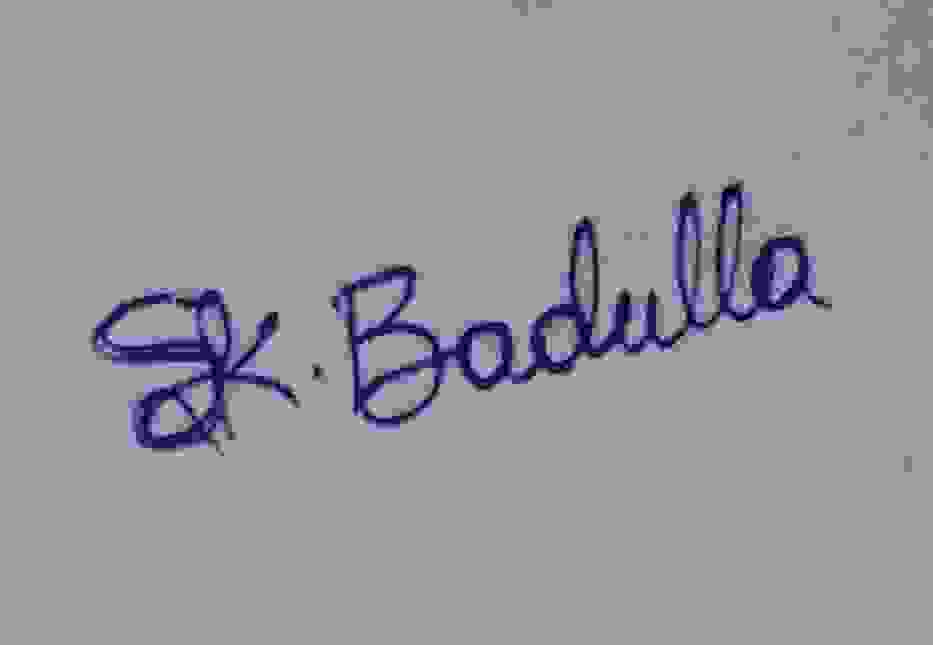 Sk. Badulla